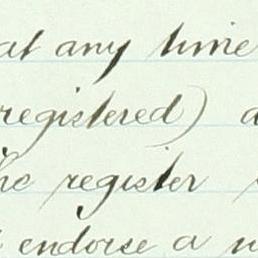 at any time
registered)
the register
endorse a